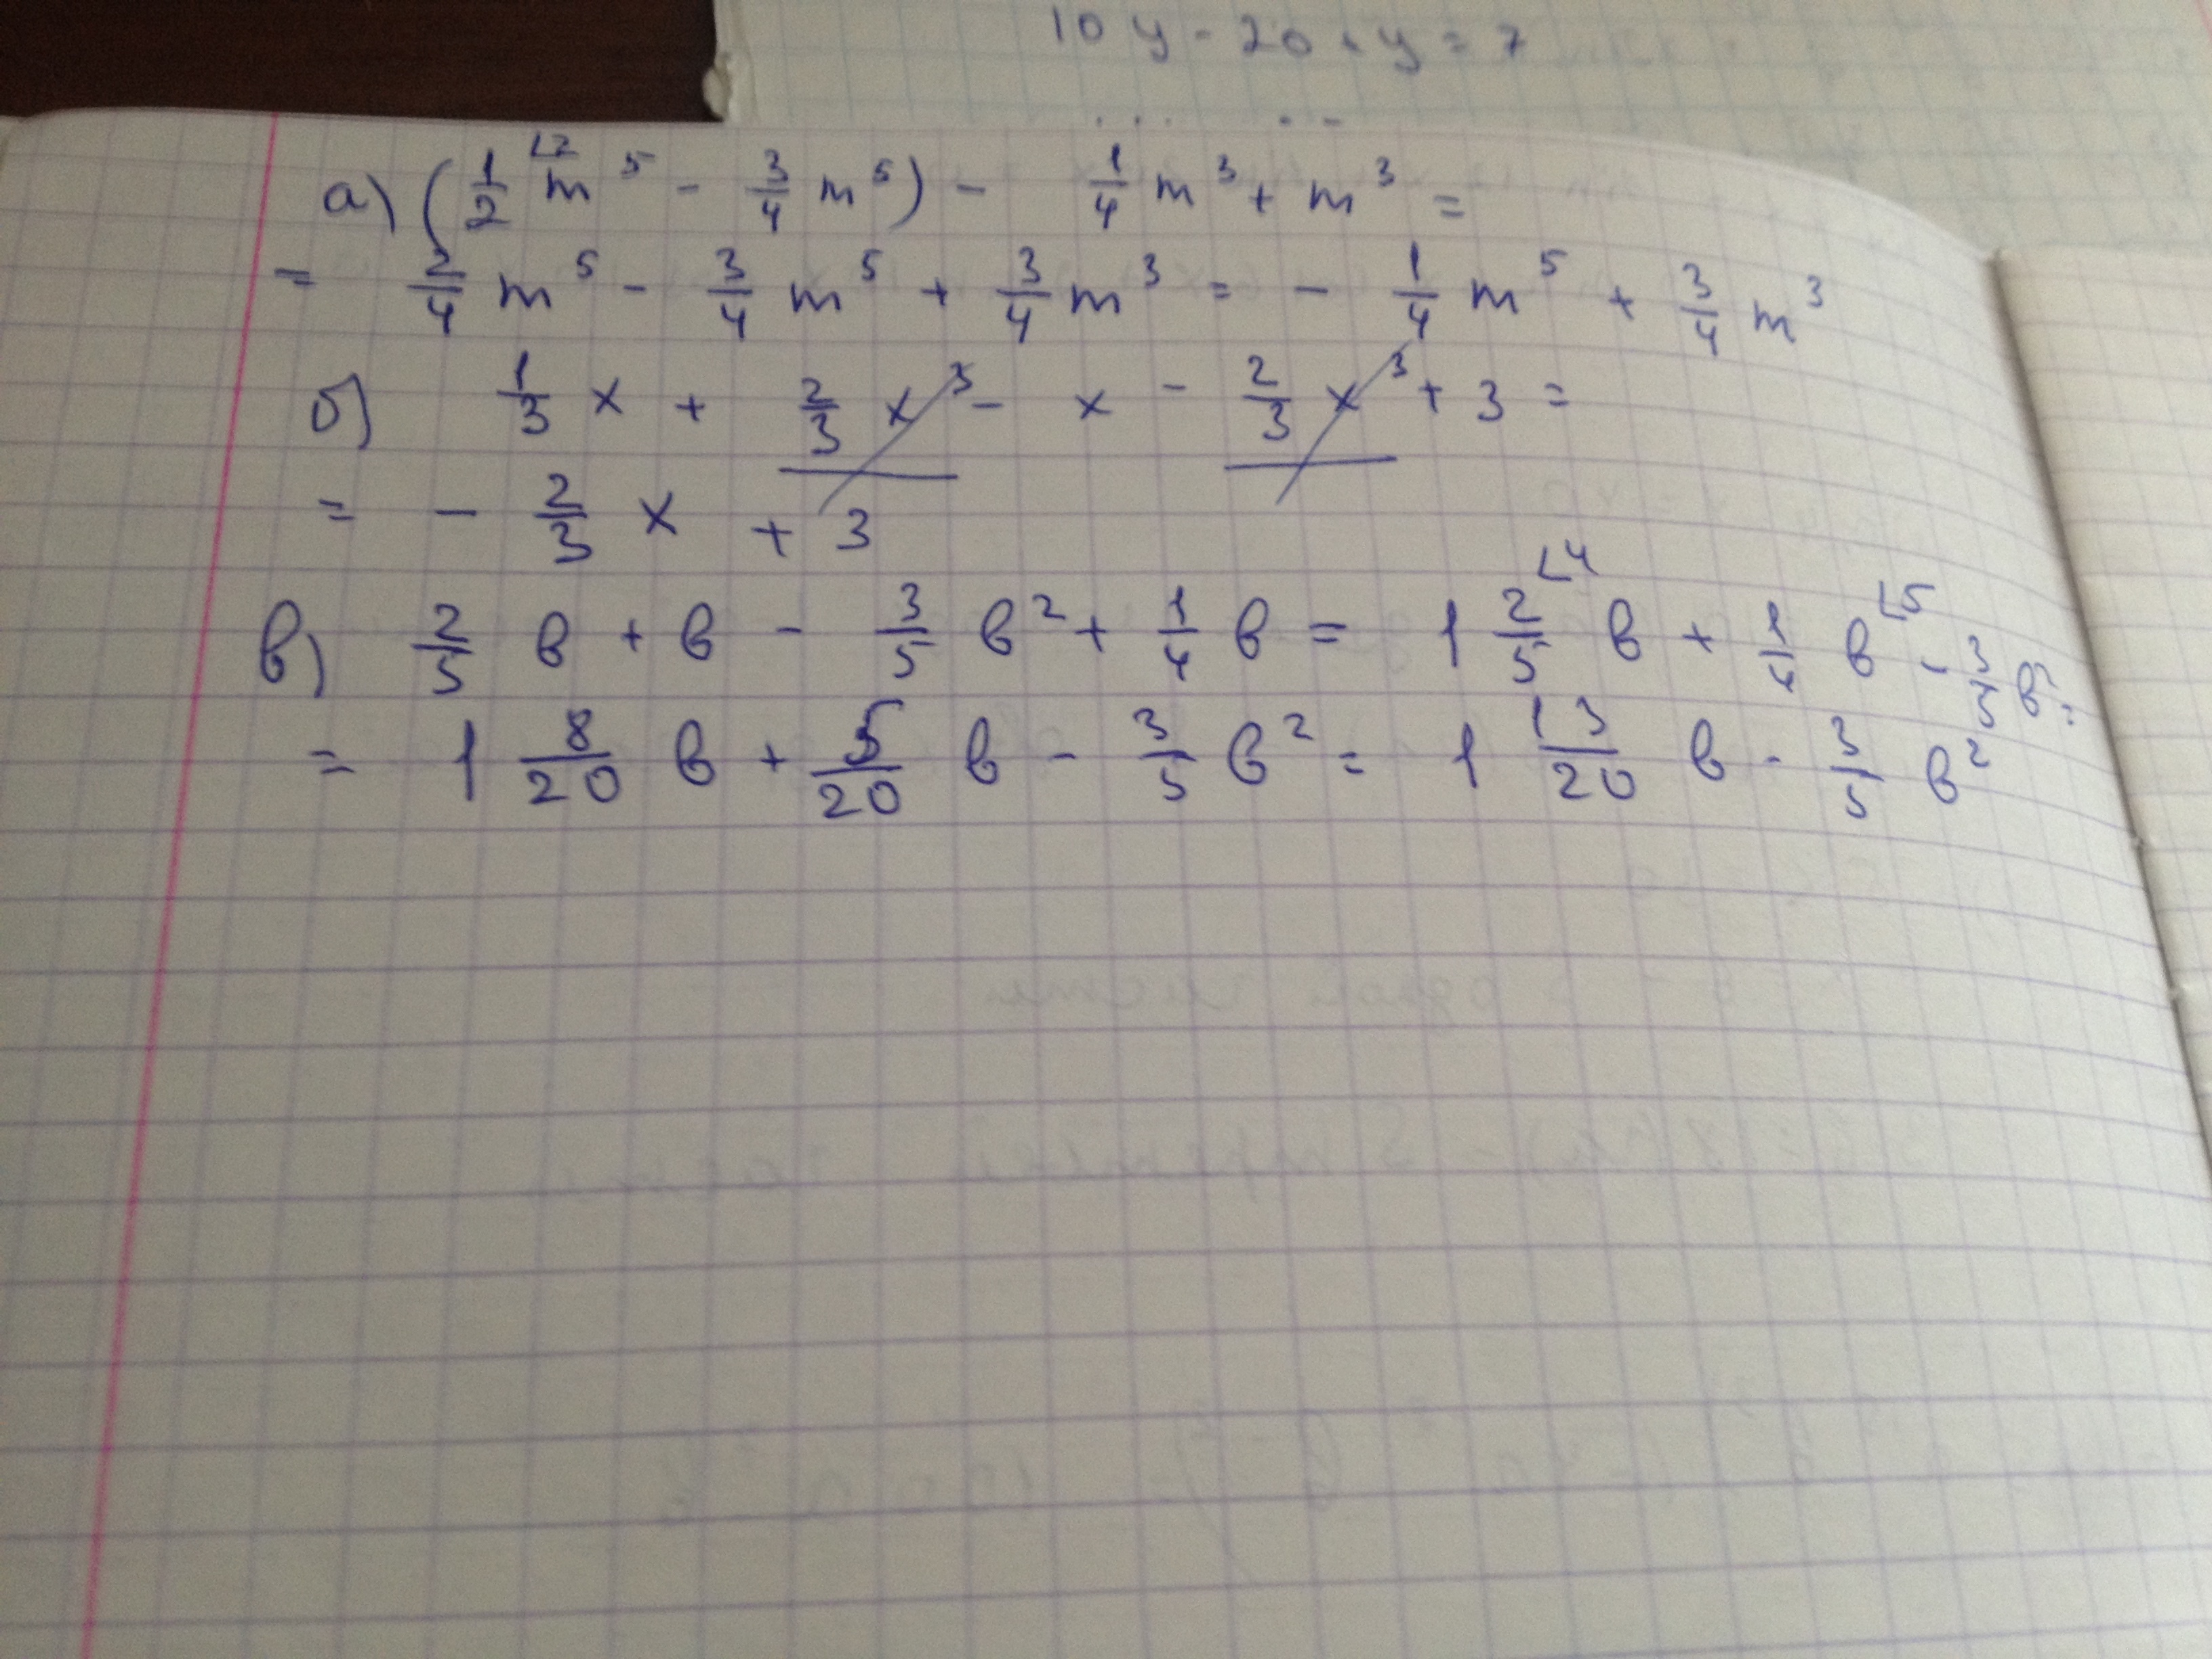 10 y - 20 + y = 7
а) (1/2 ∟2 m⁵ - 3/4 m⁵) - 1/4 m³ + m³ =
= 2/4 m⁵ - 3/4 m⁵ + 3/4 m³ = - 1/4 m⁵ + 3/4 m³
б) 1/3 x + 2/3 x³ - x - 2/3 x³ + 3 =
= - 2/3 x + 3
в) 2/5 в + в - 3/5 в² + 1/4 в = 1 2/5 ∟4 в + 1/4 в ∟5 - 3/5 в² =
= 1 8/20 в + 5/20 в - 3/5 в² = 1 13/20 в - 3/5 в²